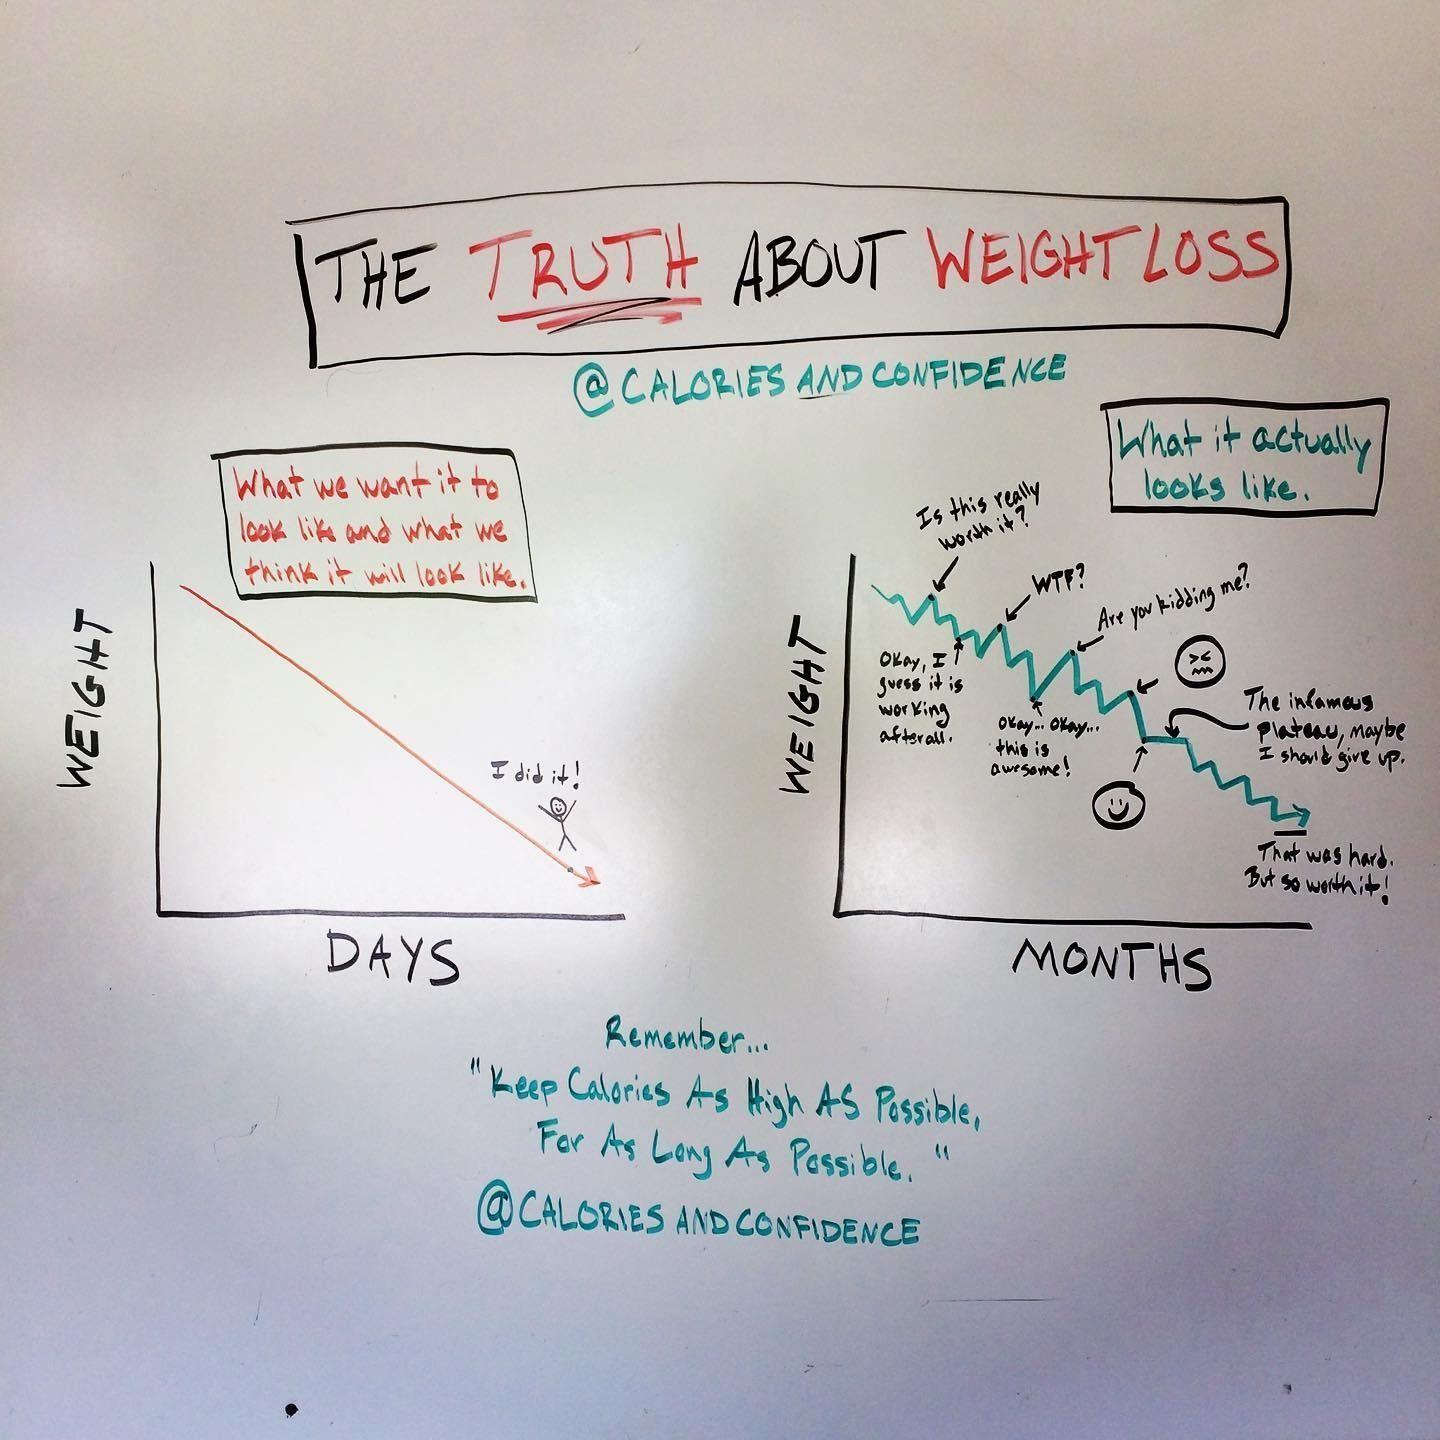 THE TRUTH ABOUT WEIGHT LOSS
@CALORIES AND CONFIDENCE
What we want it to
look like and what we
think it will look like.
WEIGHT
I did it!
DAYS
What it actually
looks like.
WEIGHT
Is this really
worth it?
WTF?
Are you kidding me?
Okay, I
guess it is
working
after all.
Okay... Okay...
this is
awesome!
The infamous
plateau, maybe
I should give up.
That was hard.
But so worth it!
MONTHS
Remember...
"Keep Calories As High AS Possible,
For As Long As Possible."
@CALORIES AND CONFIDENCE